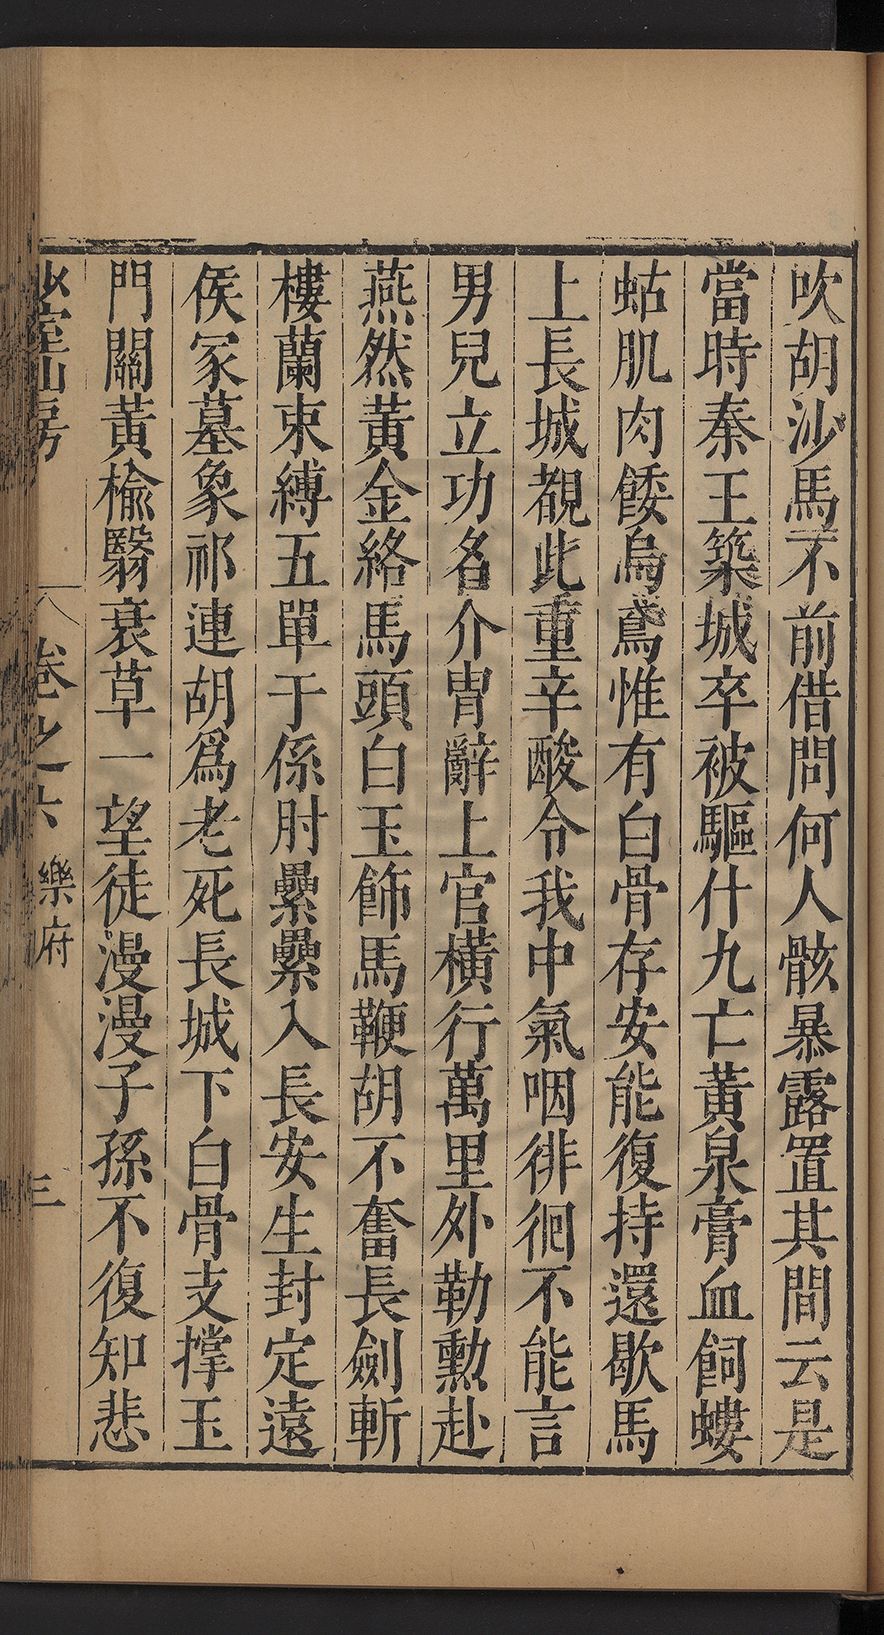 吹胡沙馬不前借問何人骸暴露置其間云是
當時秦王築城卒被驅什九亡黃泉膏血飼螻
蛄肌肉餧烏鳶惟有白骨存安能復持還歇馬
上長城覩此重辛酸令我中氣咽徘徊不能言
男兒立功名介冑辭上官橫行萬里外勒勳赴
燕然黃金絡馬頭白玉飾馬鞭胡不奮長劍斬
樓蘭束縛五單于係肘纍纍入長安生封定遠
侯冢墓象祁連胡爲老死長城下白骨支撐玉
門關黃榆翳衰草一望徒漫漫子孫不復知悲
少室山房 卷之六 樂府 三